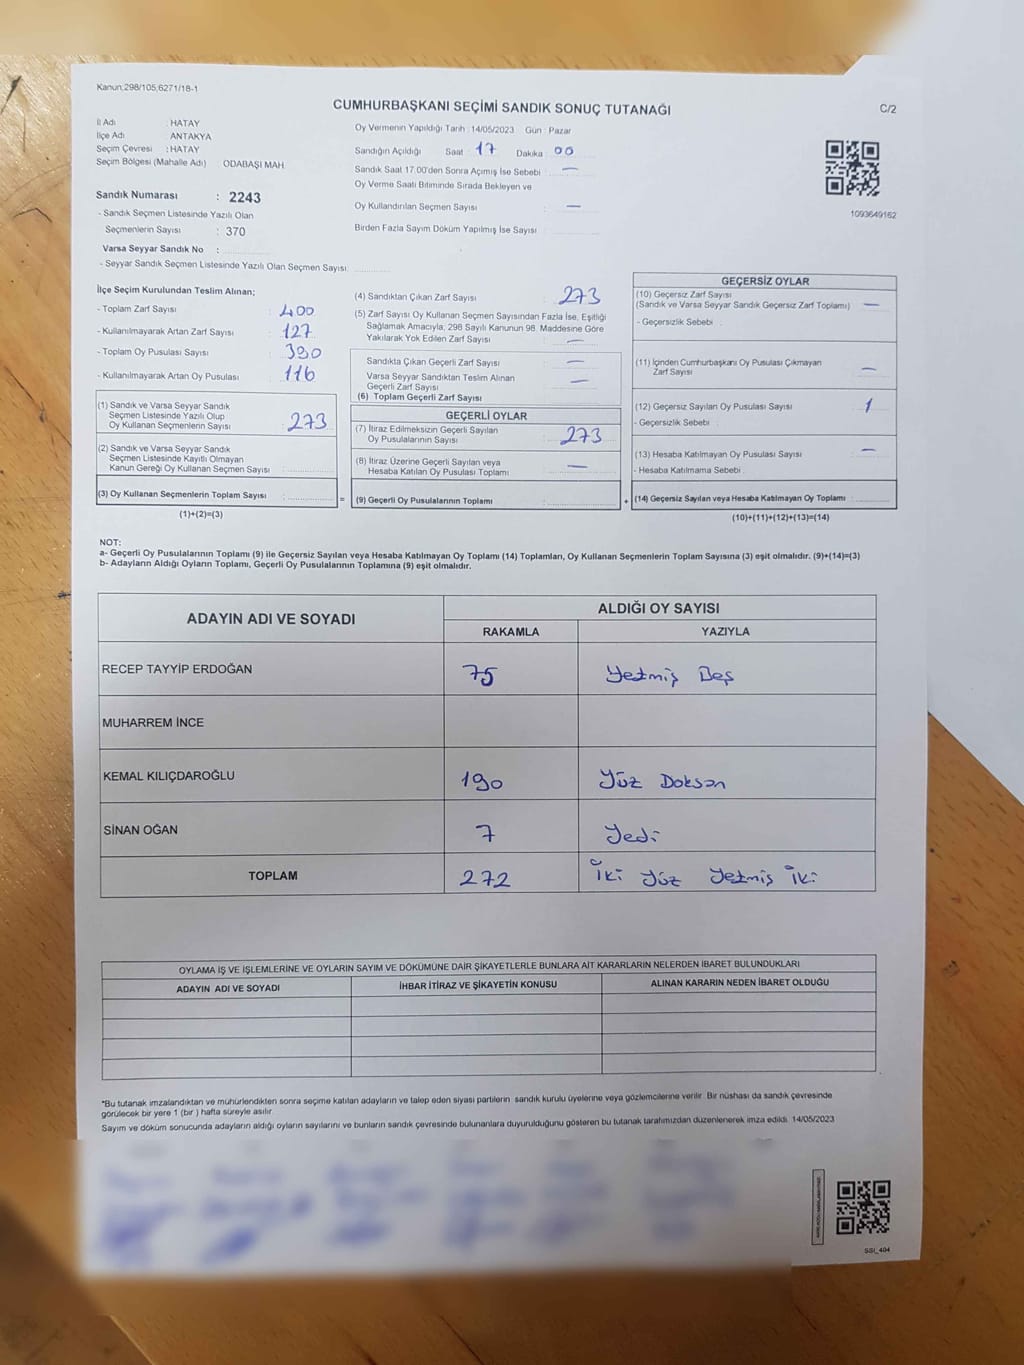 Kanun;298/105;6271/18-1
CUMHURBAŞKANI SEÇİMİ SANDIK SONUÇ TUTANAĞI
C/2
İl Adı : HATAY
İlçe Adı : ANTAKYA
Seçim Çevresi : HATAY
Seçim Bölgesi (Mahalle Adı) ODABAŞI MAH.
Sandık Numarası : 2243
- Sandık Seçmen Listesinde Yazılı Olan
Seçmenlerin Sayısı : 370
Varsa Seyyar Sandık No :
- Seyyar Sandık Seçmen Listesinde Yazılı Olan Seçmen Sayısı:
Oy Vermenin Yapıldığı Tarih : 14/05/2023 Gün : Pazar
Sandığın Açıldığı Saat : 17 Dakika : 00
Sandık Saat 17.00'den Sonra Açımış İse Sebebi : —
Oy Verme Saati Bitiminde Sırada Bekleyen ve
Oy Kullandırılan Seçmen Sayısı : —
Birden Fazla Sayım Döküm Yapılmış İse Sayısı :
1093649162
İlçe Seçim Kurulundan Teslim Alınan;
- Toplam Zarf Sayısı : 400
- Kullanılmayarak Artan Zarf Sayısı : 127
- Toplam Oy Pusulası Sayısı : 390
- Kullanılmayarak Artan Oy Pusulası : 116
(1) Sandık ve Varsa Seyyar Sandık
Seçmen Listesinde Yazılı Olup
Oy Kullanan Seçmenlerin Sayısı : 273
(2) Sandık ve Varsa Seyyar Sandık
Seçmen Listesinde Kayıtlı Olmayan
Kanun Gereği Oy Kullanan Seçmen Sayısı :
(3) Oy Kullanan Seçmenlerin Toplam Sayısı : =
(1)+(2)=(3)
(4) Sandıktan Çıkan Zarf Sayısı : 273
(5) Zarf Sayısı Oy Kullanan Seçmen Sayısından Fazla İse, Eşitliği
Sağlamak Amacıyla; 298 Sayılı Kanunun 98. Maddesine Göre
Yakılarak Yok Edilen Zarf Sayısı : —
Sandıkta Çıkan Geçerli Zarf Sayısı : —
Varsa Seyyar Sandıktan Teslim Alınan
Geçerli Zarf Sayısı : —
(6) Toplam Geçerli Zarf Sayısı
GEÇERLİ OYLAR
(7) İtiraz Edilmeksizin Geçerli Sayılan
Oy Pusulalarının Sayısı : 273
(8) İtiraz Üzerine Geçerli Sayılan veya
Hesaba Katılan Oy Pusulası Toplamı : —
(9) Geçerli Oy Pusulalarının Toplamı : +
GEÇERSİZ OYLAR
(10) Geçersiz Zarf Sayısı
(Sandık ve Varsa Seyyar Sandık Geçersiz Zarf Toplamı) : —
- Geçersizlik Sebebi :
(11) İçinden Cumhurbaşkanı Oy Pusulası Çıkmayan
Zarf Sayısı : —
(12) Geçersiz Sayılan Oy Pusulası Sayısı : 1
- Geçersizlik Sebebi :
(13) Hesaba Katılmayan Oy Pusulası Sayısı : —
- Hesaba Katılmama Sebebi :
(14) Geçersiz Sayılan veya Hesaba Katılmayan Oy Toplamı :
(10)+(11)+(12)+(13)=(14)
NOT:
a- Geçerli Oy Pusulalarının Toplamı (9) ile Geçersiz Sayılan veya Hesaba Katılmayan Oy Toplamı (14) Toplamları, Oy Kullanan Seçmenlerin Toplam Sayısına (3) eşit olmalıdır. (9)+(14)=(3)
b- Adayların Aldığı Oyların Toplamı, Geçerli Oy Pusulalarının Toplamına (9) eşit olmalıdır.
ADAYIN ADI VE SOYADI ALDIĞI OY SAYISI
RAKAMLA YAZIYLA
RECEP TAYYİP ERDOĞAN 75 Yetmiş Beş
MUHARREM İNCE
KEMAL KILIÇDAROĞLU 190 Yüz Doksan
SİNAN OĞAN 7 Yedi
TOPLAM 272 İki Yüz Yetmiş İki
OYLAMA İŞ VE İŞLEMLERİNE VE OYLARIN SAYIM VE DÖKÜMÜNE DAİR ŞİKAYETLERLE BUNLARA AİT KARARLARIN NELERDEN İBARET BULUNDUKLARI
ADAYIN ADI VE SOYADI İHBAR İTİRAZ VE ŞİKAYETİN KONUSU ALINAN KARARIN NEDEN İBARET OLDUĞU
*Bu tutanak imzalandıktan ve mühürlendikten sonra seçime katılan adayların ve talep eden siyasi partilerin sandık kurulu üyelerine veya gözlemcilerine verilir. Bir nüshası da sandık çevresinde
görülecek bir yere 1 (bir ) hafta süreyle asılır.
Sayım ve döküm sonucunda adayların aldığı oyların sayılarını ve bunların sandık çevresinde bulunanlara duyurulduğunu gösteren bu tutanak tarafımızdan düzenlenerek imza edildi. 14/05/2023
SSI_404